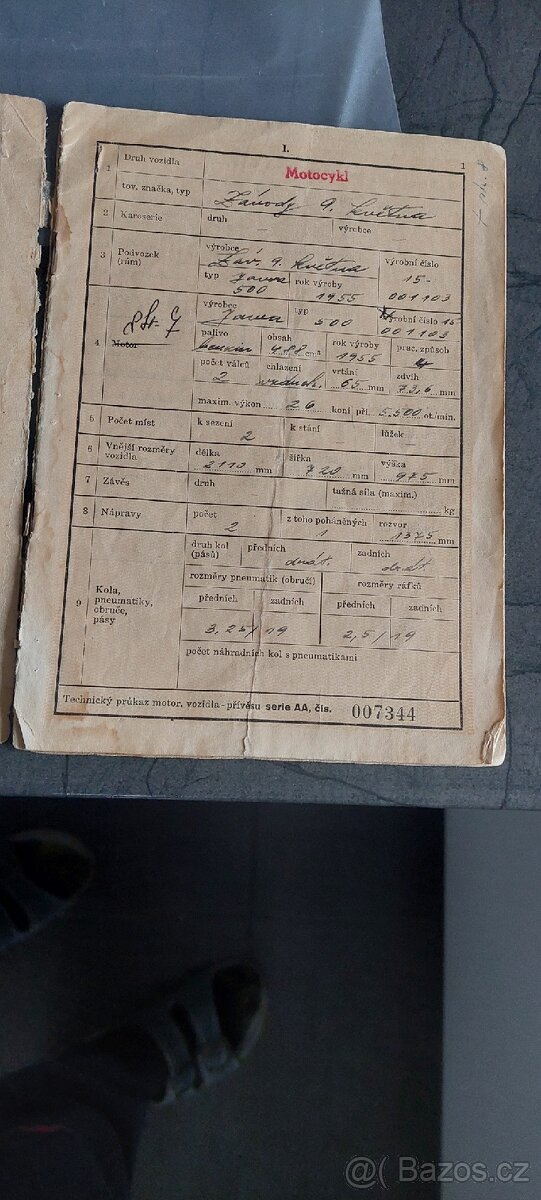 I.
1
1 Druh vozidla Motocykl
tov. značka, typ Závody 9. května
2 Karoserie druh výrobce
3 Podvozek (rám) výrobce Záv. 9. května výrobní číslo
typ Jawa 500 rok výroby 1955 15-001103
4 Motor výrobce Jawa typ 500 výrobní číslo 15-001103
palivo benzin obsah 488 cm³ rok výroby 1955 prac. způsob 4
počet válců 2 chlazení vzduch. vrtání 65 mm zdvih 73,6 mm
maxim. výkon 26 koní při 5.500 ot./min.
5 Počet míst k sezení 2 k stání lůžek
6 Vnější rozměry vozidla délka 2110 mm šířka 720 mm výška 975 mm
7 Závěs druh tažná síla (maxim.) kg
8 Nápravy počet 2 z toho poháněných 1 rozvor 1375 mm
9 Kola, pneumatiky, obruče, pásy
druh kol (pásů) předních drát. zadních drát.
rozměry pneumatik (obručí) rozměry ráfků
předních zadních předních zadních
3,25/19 2,5/19
počet náhradních kol s pneumatikami
Technický průkaz motor. vozidla - přívěsu serie AA, čís. 007344
@( Bazos.cz